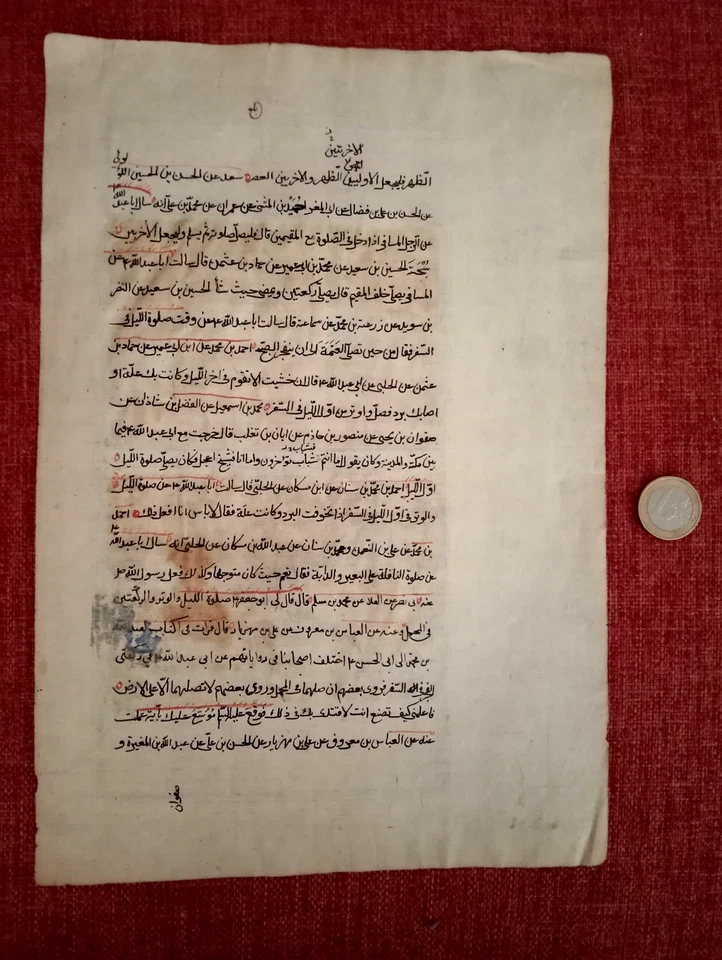 الاخرتين
الظهر فليجعل الاوليين الظهر والاخريين العصر سعد عن الحسن بن الحسين اللؤلؤى
عن الحسن بن على بن فضال عن ابى المغرا حميد بن المثنى عن عمران عن محمد بن على انه سال ابا عبد الله
عن الرجل المسافر اذا دخل فى الصلوة مع المقيمين قال فليصل صلوته ثم يسلم وليجعل الأخريين
سبحة الحسين بن سعيد عن محمد بن ابى عمير عن حماد بن عثمن قال سالت ابا عبد الله ع عن
المسافر يصلى خلف المقيم قال يصلى ركعتين ويمضى حيث شأ الحسين بن سعيد عن النضر
بن سويد عن زرعة بن محمد عن سماعة قال سالت ابا عبد الله ع عن وقت صلوة الليل فى
السفر فقال من حين تصلى العتمة الى ان ينفجر الصبح احمد بن محمد عن ابن ابى عمير عن حماد بن
عثمن عن الحلبى عن ابى عبد الله ع قال ان خشيت الا تقوم فى اخر الليل او كانت بك علة او
اصابك برد فصل واوتر من اول الليل فى السفر محمد بن اسمعيل عن الفضل بن شاذان عن
صفوان بن يحيى عن منصور بن حازم عن ابان بن تغلب قال خرجت مع ابى عبد الله ع فيما
بين مكة والمدينة وكان يقول اما انتم فشباب تؤخرون واما انا فشيخ اعجل فكان يصلى صلوة الليل
اول الليل احمد بن محمد عن محمد بن سنان عن ابن مسكان عن الحلبى قال سالت ابا عبد الله ع عن صلوة الليل
والوتر فى اول الليل فى السفر اذا تخوفت البرد وكانت علة فقال لا باس انا افعل ذلك احمد
بن محمد عن على بن النعمن ومحمد بن سنان عن عبد الله بن مسكان عن الحلبى انه سال ابا عبد الله
عن صلوة النافلة على البعير والدابة فقال نعم حيث كان متوجها وكذلك فعل رسول الله
عن محمد بن مسلم قال قال لى ابو جعفر ع صلوة الليل والوتر والركعتين
فى المحمل وعنه عن العباس بن معروف عن على بن مهزيار قال قرات فى كتاب لعبد الله
بن محمد الى ابى الحسن ع اختلف اصحابنا فى رواياتهم عن ابى عبد الله ع فى ركعتى
الفجر فى السفر فروى بعضهم ان صلهما فى المحمل وروى بعضهم لا تصلهما الا على الارض
فاعلمنى كيف تصنع انت لاقتدى بك فى ذلك فوقع عليه السلم موسع عليك باية عملت
عنه عن العباس بن معروف عن على بن مهزيار عن الحسن بن على عن عبد الله بن المغيرة و
صفوان